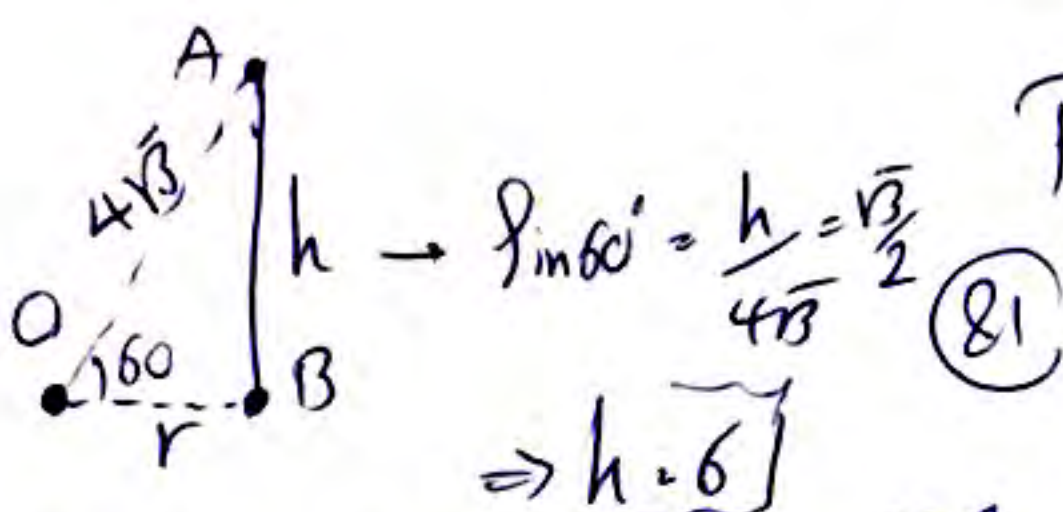 A
4√3
h → Sin60° = h/4√3 = √3/2
81
O
60
B
r
⇒ h = 6